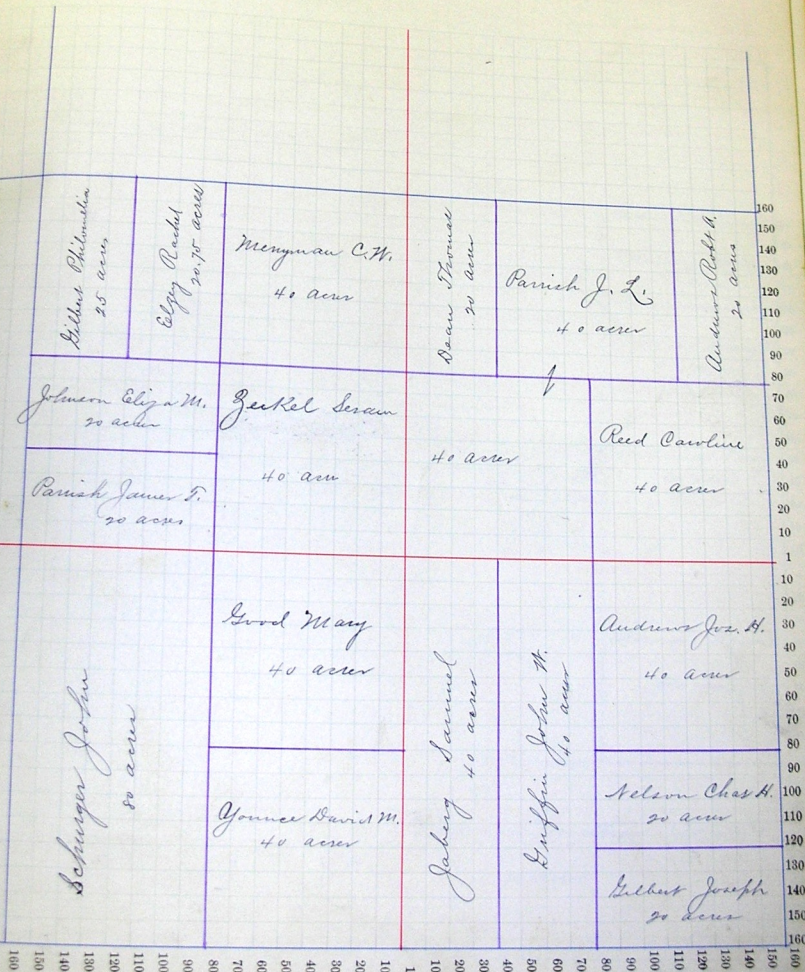 Gilbert Philomelia
25 acres
Elzey Rachel
20.75 acres
Merryman C.W.
40 acres
Dean Thomas
20 acres
Parrish J. L.
40 acres
Andrews Robt A.
20 acres
Johnson Eliza M.
20 acres
Parrish James T.
20 acres
Zeikel
40 acres
40 acres
Reed Caroline
40 acres
Schurger John
80 acres
Good Mary
40 acres
Younce David M.
40 acres
Jaberg Samuel
40 acres
Griffin John W.
40 acres
Andrews Jos. H.
40 acres
Nelson Chas H.
20 acres
Gilbert Joseph
20 acres
160
150
140
130
120
110
100
90
80
70
60
50
40
30
20
10
1
10
20
30
40
50
60
70
80
90
100
110
120
130
140
150
160
160 150 140 130 120 110 100 90 80 70 60 50 40 30 20 10 1 10 20 30 40 50 60 70 80 90 100 110 120 130 140 150 160